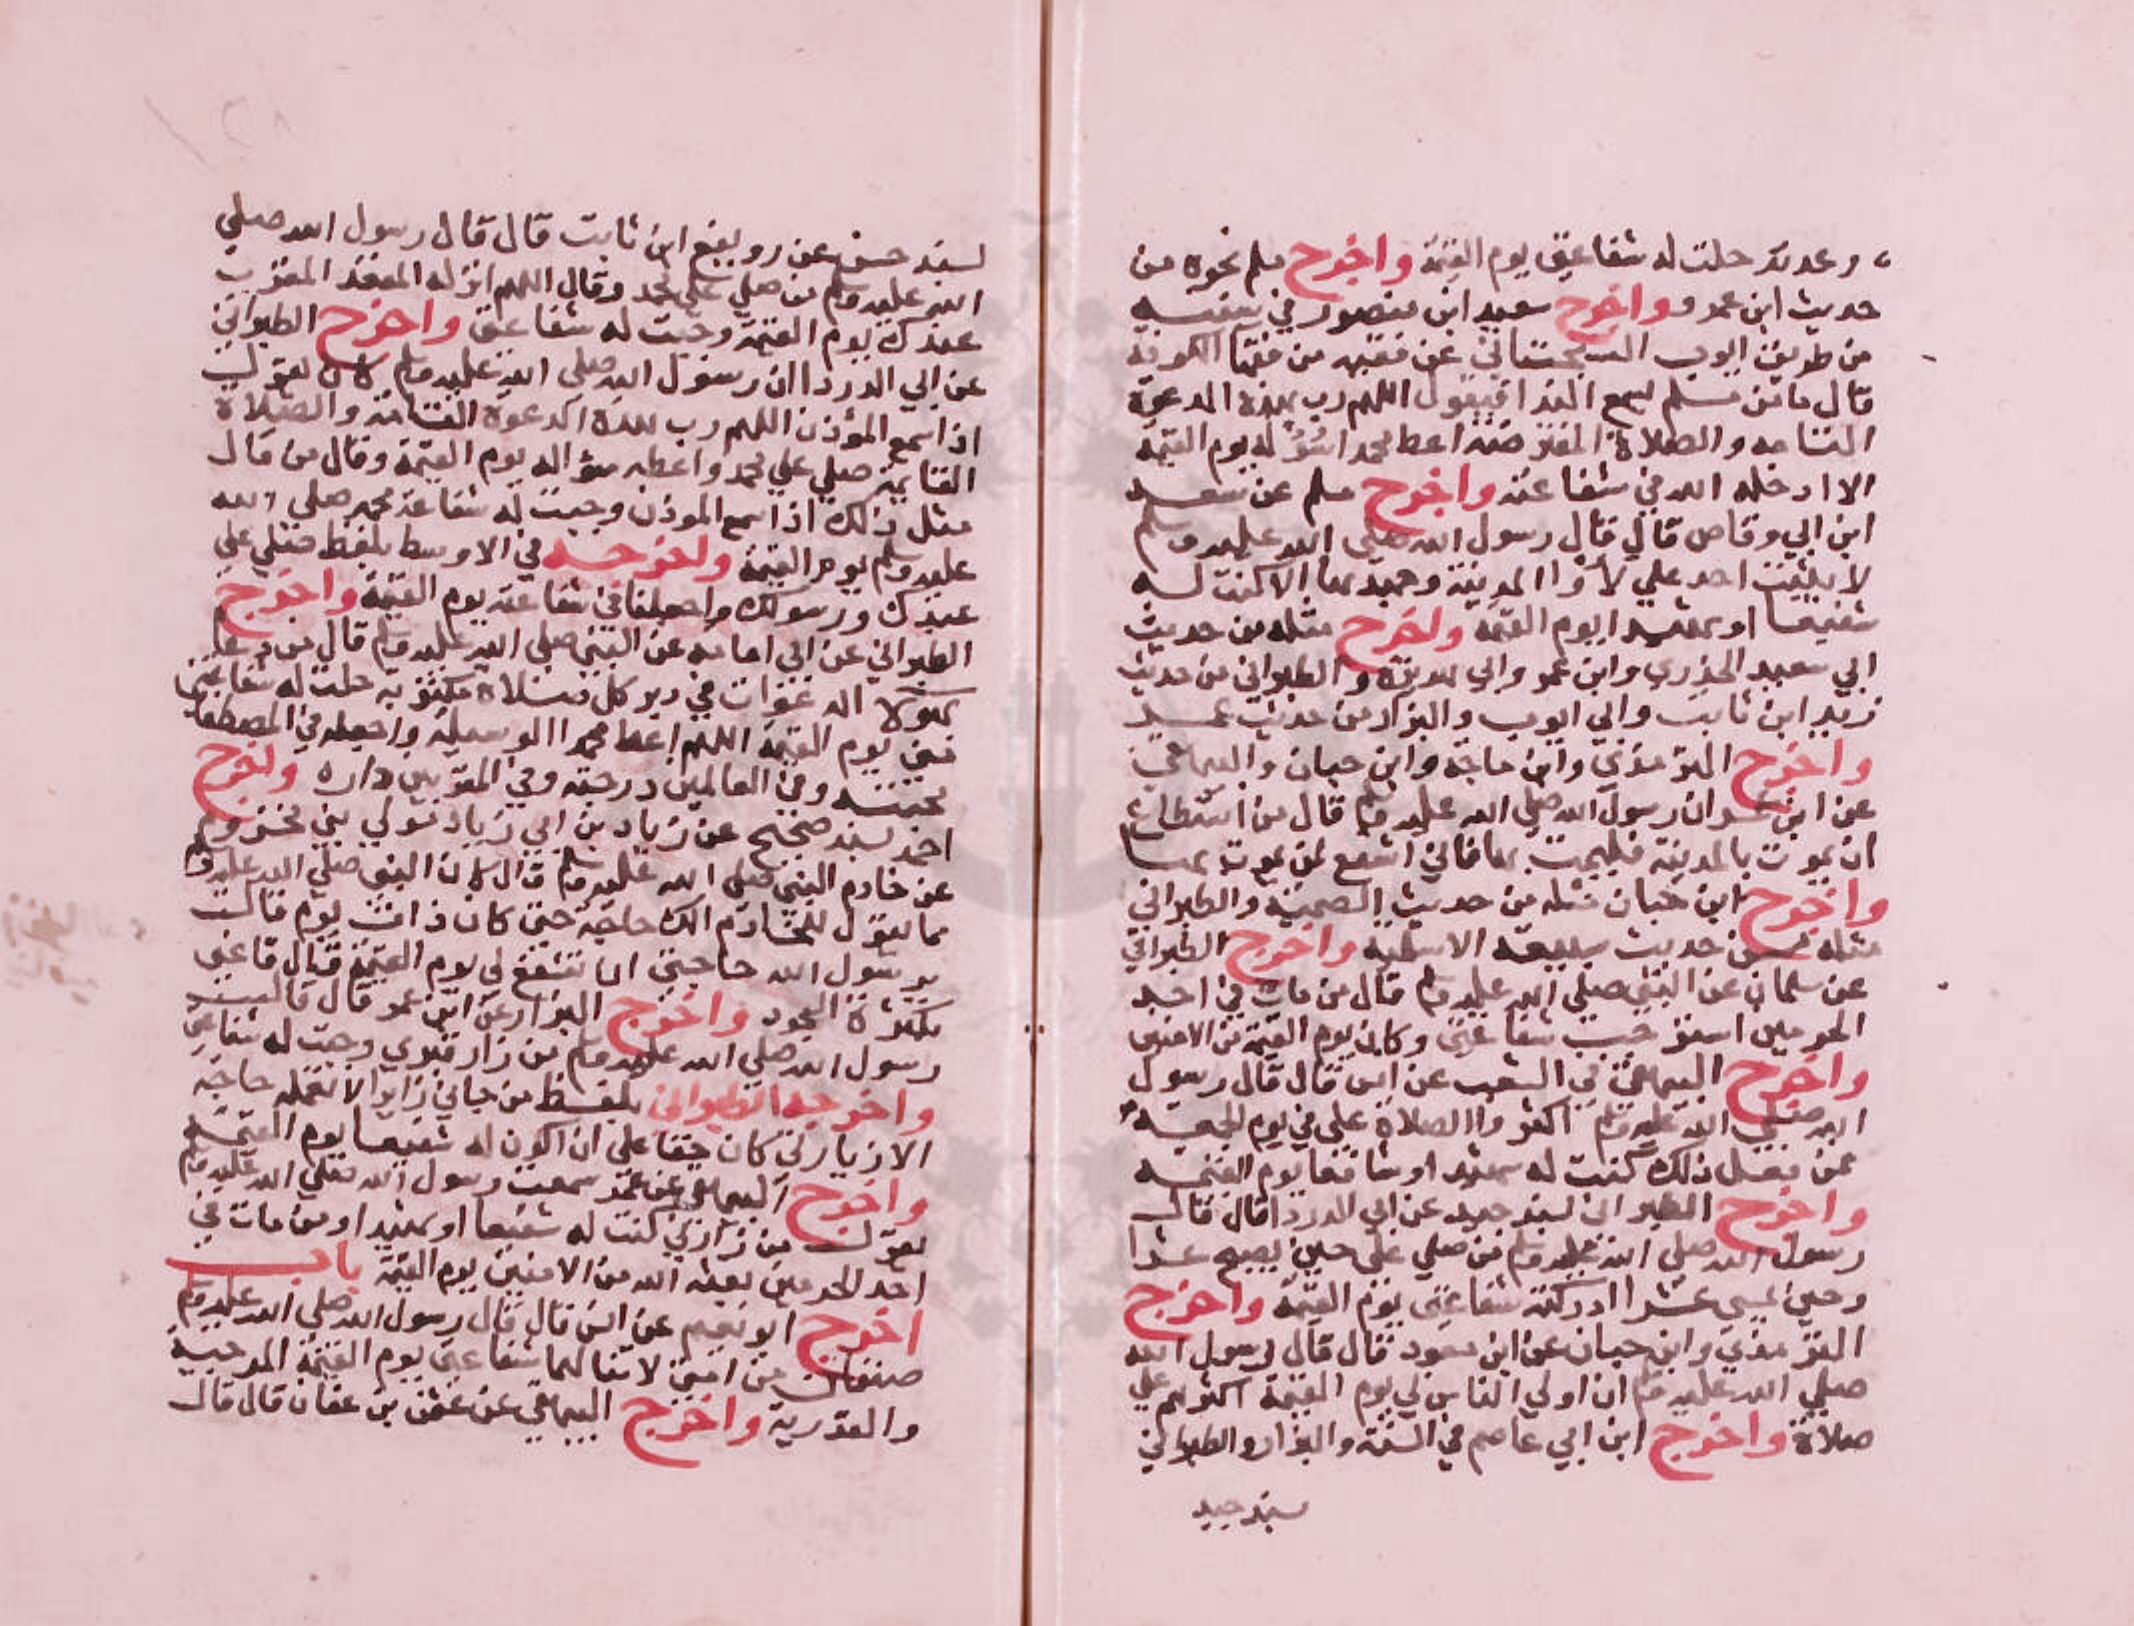 وعدته حلت له شفاعتي يوم القيمة واخرج مسلم نحوه من
حديث ابن عمرو واخرج سعيد ابن منصور في سننه
من طريق ايوب السختياني عن فقيه من فقها الكوفة
قال ما من مسلم يسمع الندا فيقول اللهم رب هذه الدعوة
التامه والصلاة المفترضة اعط محمدا سؤله يوم القيمة
الا ادخله الله في شفاعته واخرج مسلم عن سعد
ابن ابي وقاص قال قال رسول الله صلى الله عليه وسلم
لا يثبت احد علي لأوا المدينة وجهدها الا كنت له
شفيعا او شهيدا يوم القيمة واخرج مثله من حديث
ابي سعيد الخدري وابن عمر وابي هريرة والطبراني من حديث
زيد ابن ثابت وابي ايوب والبزار من حديث عمر
واخرج الترمذي وابن ماجة وابن حبان والبيهقي
عن ابن عمر ان رسول الله صلى الله عليه وسلم قال من استطاع
ان يموت بالمدينة فليمت بها فاني اشفع لمن يموت بها
واخرج ابن حبان مثله من حديث الصميتة والطبراني
مثله من حديث سبيعة الاسلمية واخرج الطبراني
عن سلمان عن النبي صلى الله عليه وسلم قال من مات في احد
الحرمين استوجب شفاعتي وكان يوم القيمة من الامنين
واخرج البيهقي في الشعب عن انس قال قال رسول
الله صلى الله عليه وسلم اكثروا الصلاة على في يوم الجمعة
فمن فعل ذلك كنت له شهيد او شافعا يوم القيمة
واخرج الطبراني بسند جيد عن ابي الدردا قال قال
رسول الله صلى الله عليه وسلم من صلى على حين يصبح عشرا
وحين يمسي عشرا ادركته شفاعتي يوم القيمة واخرج
الترمذي وابن حبان عن ابن مسعود قال قال رسول الله
صلى الله عليه وسلم ان اولي الناس لي يوم القيمة اكثرهم علي
صلاة واخرج ابن ابي عاصم في السنة والبزار والطبراني
بسند جيد
بسند حسن عن رويفع ابن ثابت قال قال رسول الله صلى
الله عليه وسلم من صلى على محمد وقال اللهم انزله المقعد المقرب
عندك يوم القيمة وجبت له شفاعتي واخرج الطبراني
عن ابي الدردا ان رسول الله صلى الله عليه وسلم كان يقول
اذا سمع المؤذن اللهم رب هذه الدعوة التامة والصلاة
القايمة صلي علي محمد واعطه سؤاله يوم القيمة وقال من قال
مثل ذلك اذا سمع الموذن وجبت له شفاعة محمد صلى الله
عليه وسلم يوم القيمة واخرجه في الاوسط بلفظ صلي علي
عبدك ورسولك واجعلنا في شفاعته يوم القيمة واخرج
الطبراني عن ابي امامه عن النبي صلى الله عليه وسلم قال من دعا
بهولا الدعوات في دبر كل صلاة مكتوبه حلت له شفاعتي
مني يوم القيمة اللهم اعط محمدا الوسيلة واجعله في المصطفين
محبته وفي العالمين درجته وفي المقربين داره واخرج
احمد بسند صحيح عن زياد بن ابي زياد مولي بني مخزوم
عن خادم النبي صلى الله عليه وسلم قال كان النبي صلى الله عليه وسلم
مما يقول للخادم الك حاجة حتى كان ذات يوم قالت
يرسول الله حاجتي ان تشفع لي يوم القيمة قال فاعني
بكثرة السجود واخرج البزار عن ابن عمر قال قال
رسول الله صلى الله عليه وسلم من زار قبري وجبت له شفاعتي
واخرجه الطبراني بلفظ من جاني زايرا لا تعمله حاجة
الا زيارتي كان حقا على ان اكون له شفيعا يوم القيمة
واخرج البيهقي عن عمر سمعت رسول الله صلى الله عليه وسلم
يقول من زارني كنت له شفيعا او شهيدا ومن مات في
احد الحرمين بعثه الله من الامنين يوم القيمة باب
اخرج ابو نعيم عن انس قال قال رسول الله صلى الله عليه وسلم
صنفان من امتي لا تنالهما شفاعتي يوم القيمة المرجية
والقدرية واخرج البيهقي عن عثمن بن عفان قال قال